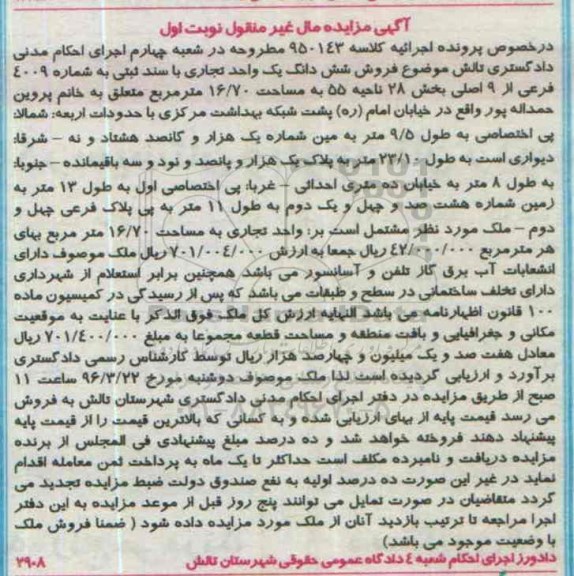 آگهی مزایده مال غیر منقول نوبت اول
درخصوص پرونده اجرائیه کلاسه ۹۵۰۱۴۳ مطروحه در شعبه چهارم اجرای احکام مدنی
دادگستری تالش موضوع فروش شش دانگ یک واحد تجاری با سند ثبتی به شماره ۴۰۰۹
فرعی از ۹ اصلی بخش ۲۸ ناحیه ۵۵ به مساحت ۱۶/۷۰ مترمربع متعلق به خانم پروین
حمداله پور واقع در خیابان امام (ره) پشت شبکه بهداشت مرکزی با حدودات اربعه: شمالا:
پی اختصاصی به طول ۹/۵ متر به مین شماره یک هزار و کانصد هشتاد و نه – شرقا:
دیواری است به طول ۲۳/۱۰ متر به پلاک یک هزار و پانصد و نود و سه باقیمانده – جنوبا:
به طول ۸ متر به خیابان ده متری احداثی – غربا: پی اختصاصی اول به طول ۱۳ متر به
زمین شماره هشت صد و چهل و یک دوم به طول ۱۱ متر به پی پلاک فرعی چهل و
دوم – ملک مورد نظر مشتمل است بر: واحد تجاری به مساحت ۱۶/۷۰ متر مربع بهای
هر مترمربع ۴۲/۰۰۰/۰۰۰ ریال جمعا به ارزش ۷۰۱/۰۰۴/۰۰۰ ریال ملک موصوف دارای
انشعابات آب برق گاز تلفن و آسانسور می باشد همچنین برابر استعلام از شهرداری
دارای تخلف ساختمانی در سطح و طبقات می باشد که پس از رسیدگی در کمیسیون ماده
۱۰۰ قانون اظهارنامه می باشد النهایه ارزش کل ملک فوق الذکر با عنایت به موقعیت
مکانی و جغرافیایی و بافت منطقه و مساحت قطعه مجموعا به مبلغ ۷۰۱/۴۰۰/۰۰۰ ریال
معادل هفت صد و یک میلیون و چهارصد هزار ریال توسط کارشناس رسمی دادگستری
برآورد و ارزیابی گردیده است لذا ملک موصوف دوشنبه مورخ ۹۶/۳/۲۲ ساعت ۱۱
صبح از طریق مزایده در دفتر اجرای احکام مدنی دادگستری شهرستان تالش به فروش
می رسد قیمت پایه از بهای ارزیابی شده و به کسانی که بالاترین قیمت را از قیمت پایه
پیشنهاد دهند فروخته خواهد شد و ده درصد مبلغ پیشنهادی فی المجلس از برنده
مزایده دریافت و نامبرده مکلف است حداکثر تا یک ماه به پرداخت ثمن معامله اقدام
نماید در غیر این صورت ده درصد اولیه به نفع صندوق دولت ضبط مزایده تجدید می
گردد متقاضیان در صورت تمایل می توانند پنج روز قبل از موعد مزایده به این دفتر
اجرا مراجعه تا ترتیب بازدید آنان از ملک مورد مزایده داده شود ( ضمنا فروش ملک
با وضعیت موجود می باشد)
دادورز اجرای احکام شعبه ٤ دادگاه عمومی حقوقی شهرستان تالش ۲۹۰۸